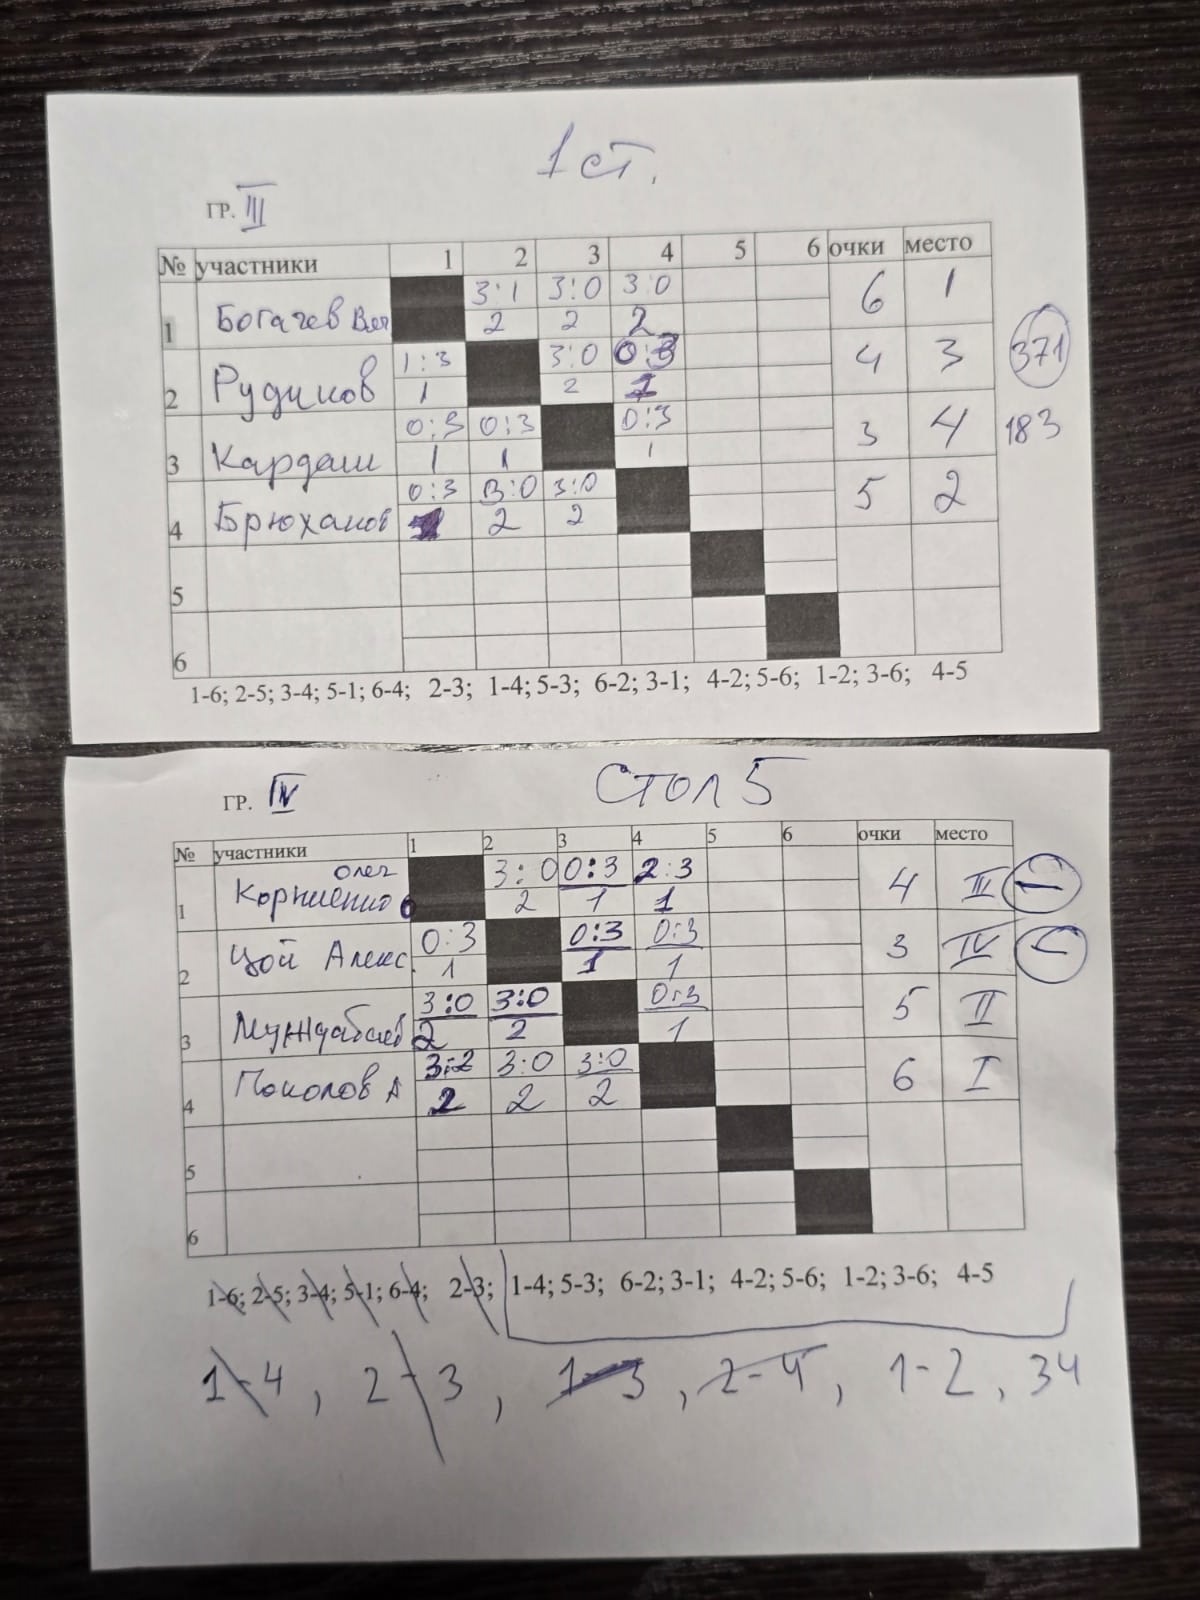 1 ст.
гр. III
№ участники 1 2 3 4 5 6 очки место
1 Богачев Вяч 3:1 3:0 3:0 6 1
2 2 2
2 Рудиков 1:3 3:0 0:3 4 3 371
1 2 1
3 Кардаш 0:3 0:3 0:3 3 4 183
1 1 1
4 Брюханов 0:3 3:0 3:0 5 2
1 2 2
5
6
1-6; 2-5; 3-4; 5-1; 6-4; 2-3; 1-4; 5-3; 6-2; 3-1; 4-2; 5-6; 1-2; 3-6; 4-5
гр. IV Стол 5
№ участники 1 2 3 4 5 6 очки место
1 Корниенко Олег 3:0 0:3 2:3 4 III
2 1 1
2 Цой Алекс. 0:3 0:3 0:3 3 IV
1 1 1
3 3:0 3:0 0:3 5 II
2 2 1
4 Поколов А 3:2 3:0 3:0 6 I
2 2 2
5
6
1-6; 2-5; 3-4; 5-1; 6-4; 2-3; 1-4; 5-3; 6-2; 3-1; 4-2; 5-6; 1-2; 3-6; 4-5
1-4, 2-3, 1-3, 2-4, 1-2, 34